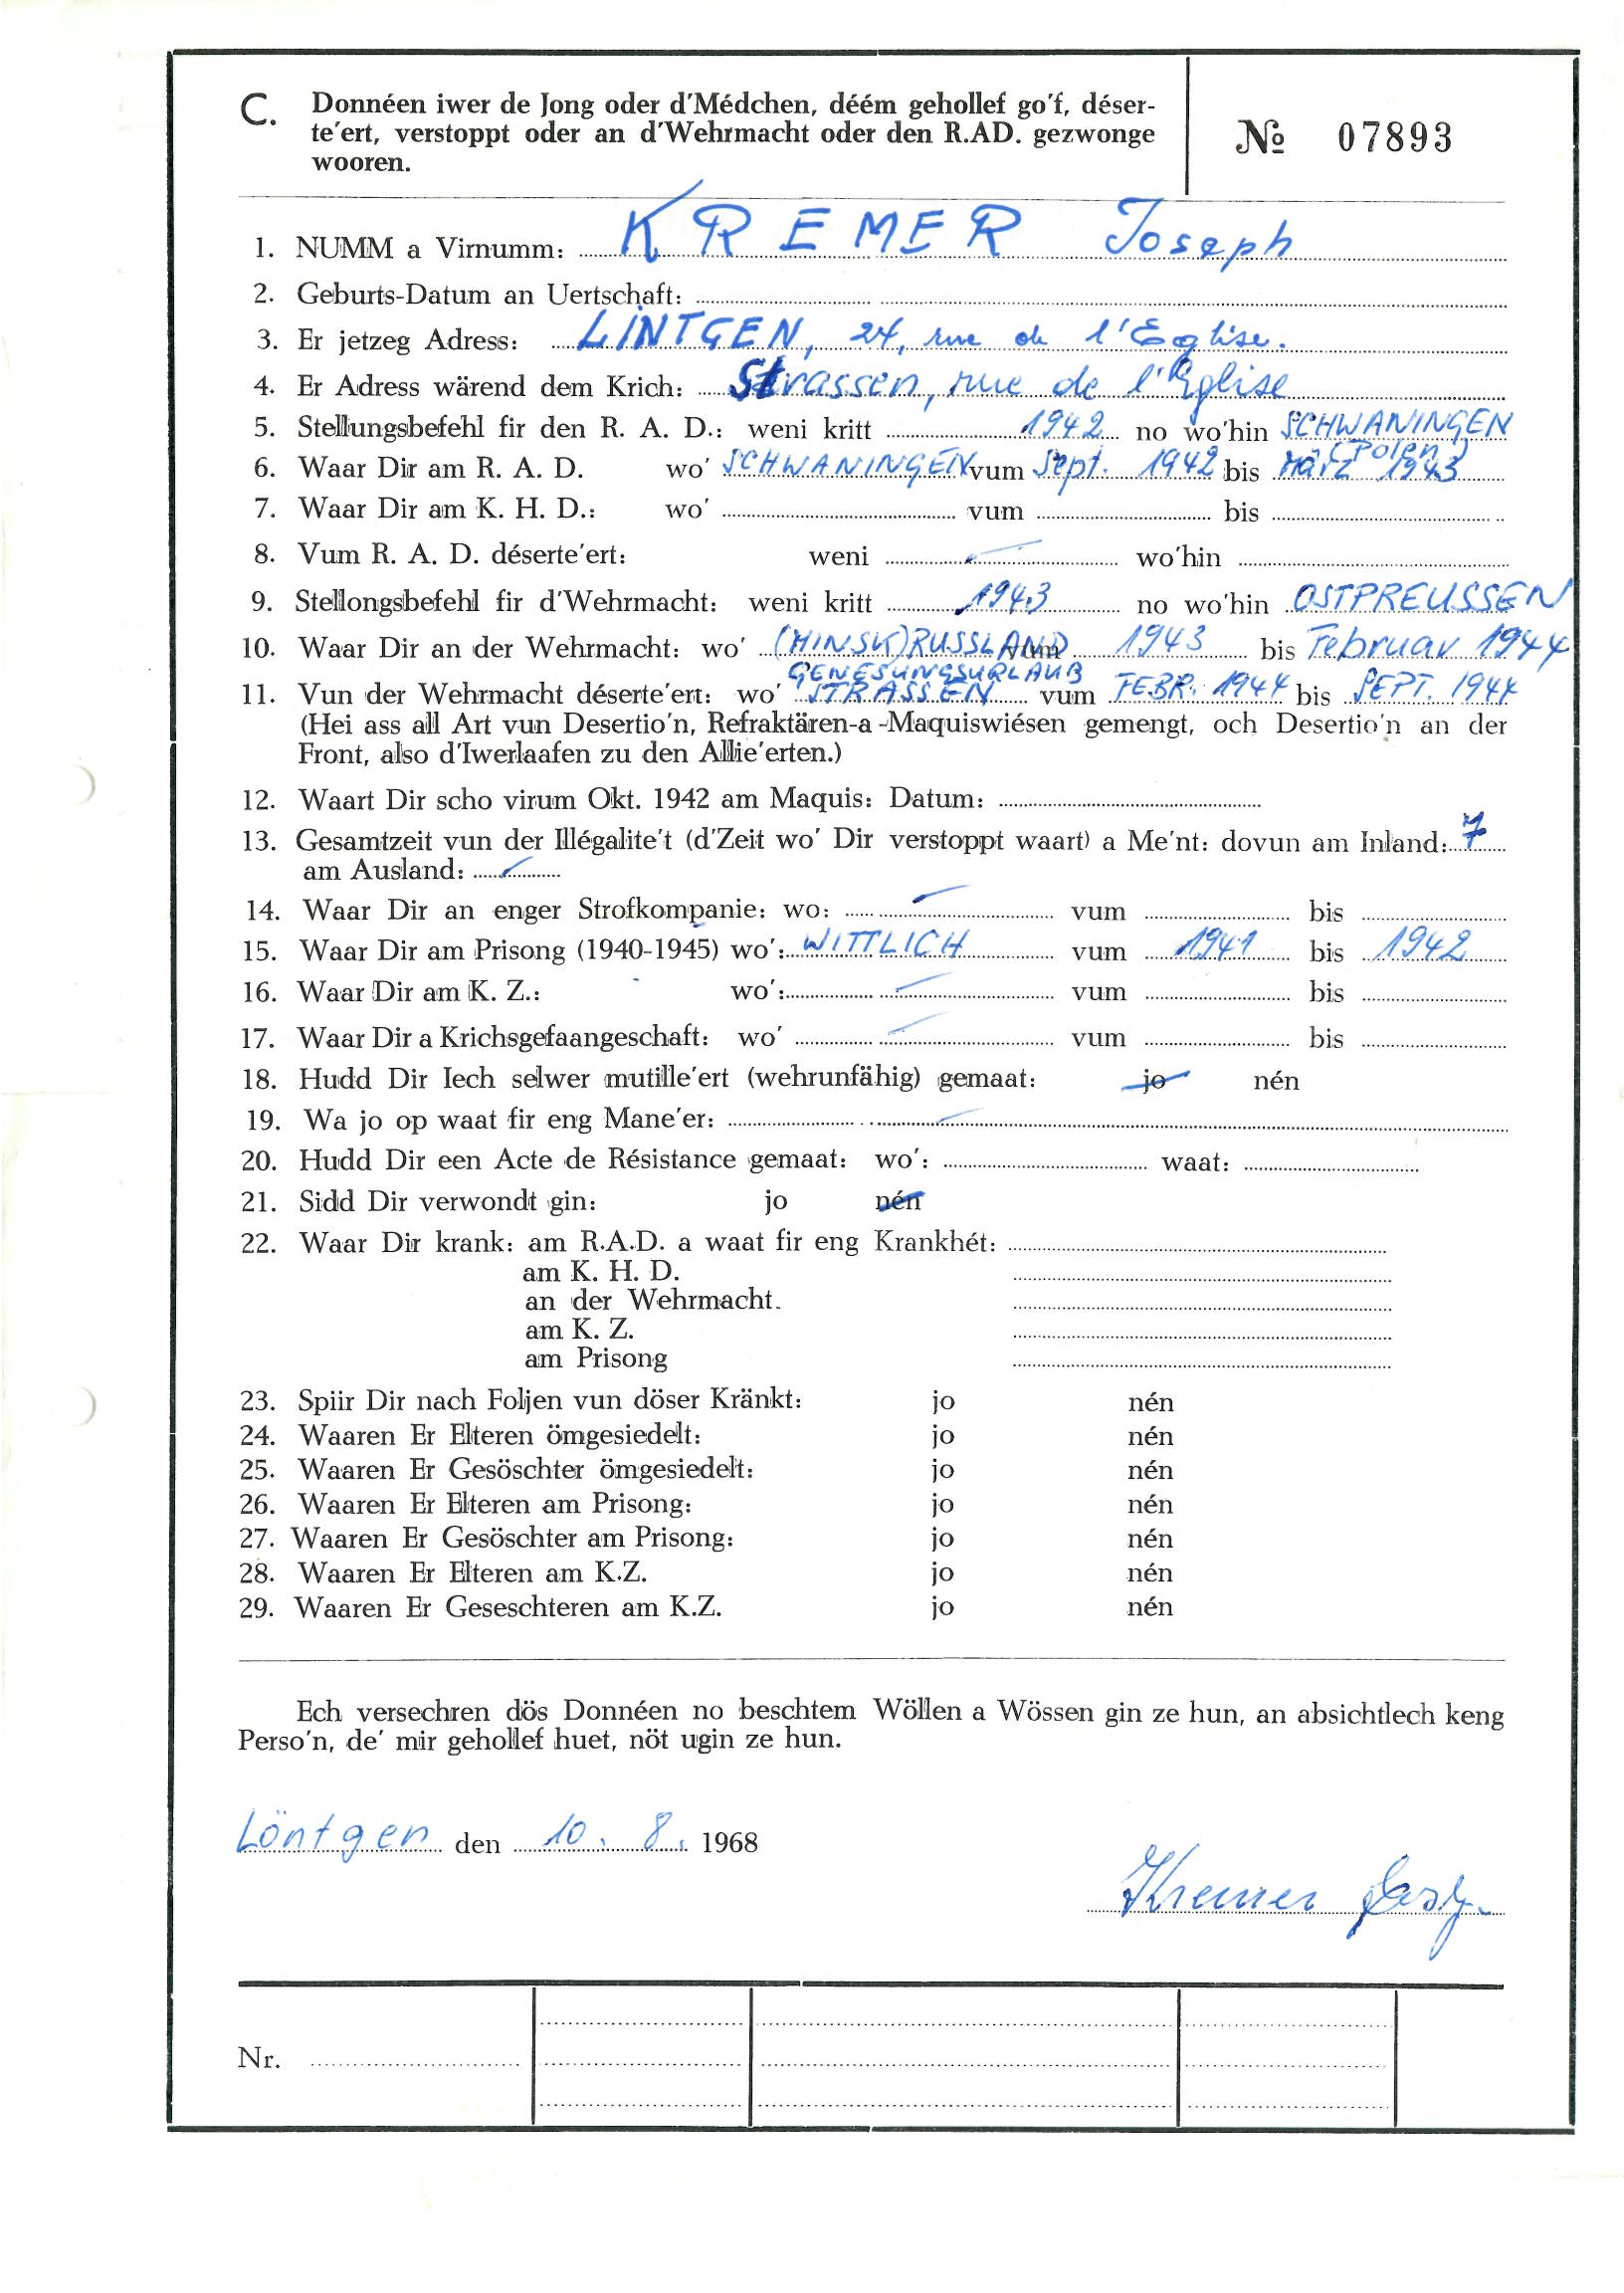 C. Donnéen iwer de Jong oder d'Médchen, déém gehollef go'f, déser-
te'ert, verstoppt oder an d'Wehrmacht oder den R.AD. gezwonge
wooren.
№ 07893
1. NUMM a Virnumm: KREMER Joseph
2. Geburts-Datum an Uertschaft:
3. Er jetzeg Adress: LINTGEN, 24, rue de l'Eglise.
4. Er Adress wärend dem Krich: Strassen, rue de l'Eglise
5. Stellungsbefehl fir den R. A. D.: weni kritt 1942 no wo'hin SCHWANINGEN
(Polen)
6. Waar Dir am R. A. D. wo' SCHWANINGEN vum Sept. 1942 bis März 1943
7. Waar Dir am K. H. D.: wo' vum bis
8. Vum R. A. D. déserte'ert: weni wo'hin
9. Stellongsbefehl fir d'Wehrmacht: weni kritt 1943 no wo'hin OSTPREUSSEN
10. Waar Dir an der Wehrmacht: wo' (MINSK) RUSSLAND vum 1943 bis Februar 1944
GENESUNGSURLAUB
11. Vun der Wehrmacht déserte'ert: wo' STRASSEN vum FEBR. 1944 bis SEPT. 1944
(Hei ass all Art vun Desertio'n, Refraktären-a -Maquiswiésen gemengt, och Desertio'n an der
Front, also d'Iwerlaafen zu den Allie'erten.)
12. Waart Dir scho virum Okt. 1942 am Maquis: Datum:
13. Gesamtzeit vun der Illégalite't (d'Zeit wo' Dir verstoppt waart) a Me'nt: dovun am Inland: 7
am Ausland:
14. Waar Dir an enger Strofkompanie: wo: vum bis
15. Waar Dir am Prisong (1940-1945) wo': WITTLICH vum 1941 bis 1942
16. Waar Dir am K. Z.: wo': vum bis
17. Waar Dir a Krichsgefaangeschaft: wo' vum bis
18. Hudd Dir Iech selwer mutille'ert (wehrunfähig) gemaat: jo nén
19. Wa jo op waat fir eng Mane'er:
20. Hudd Dir een Acte de Résistance gemaat: wo': waat:
21. Sidd Dir verwondt gin: jo nén
22. Waar Dir krank: am R.A.D. a waat fir eng Krankhét:
am K. H. D.
an der Wehrmacht.
am K. Z.
am Prisong
23. Spiir Dir nach Foljen vun döser Kränkt: jo nén
24. Waaren Er Elteren ömgesiedelt: jo nén
25. Waaren Er Gesöschter ömgesiedelt: jo nén
26. Waaren Er Elteren am Prisong: jo nén
27. Waaren Er Gesöschter am Prisong: jo nén
28. Waaren Er Elteren am K.Z. jo nén
29. Waaren Er Geseschteren am K.Z. jo nén
Ech versechren dös Donnéen no beschtem Wöllen a Wössen gin ze hun, an absichtlech keng
Perso'n, de' mir gehollef huet, nöt ugin ze hun.
Löntgen den 10. 8. 1968
Kremer
Nr.